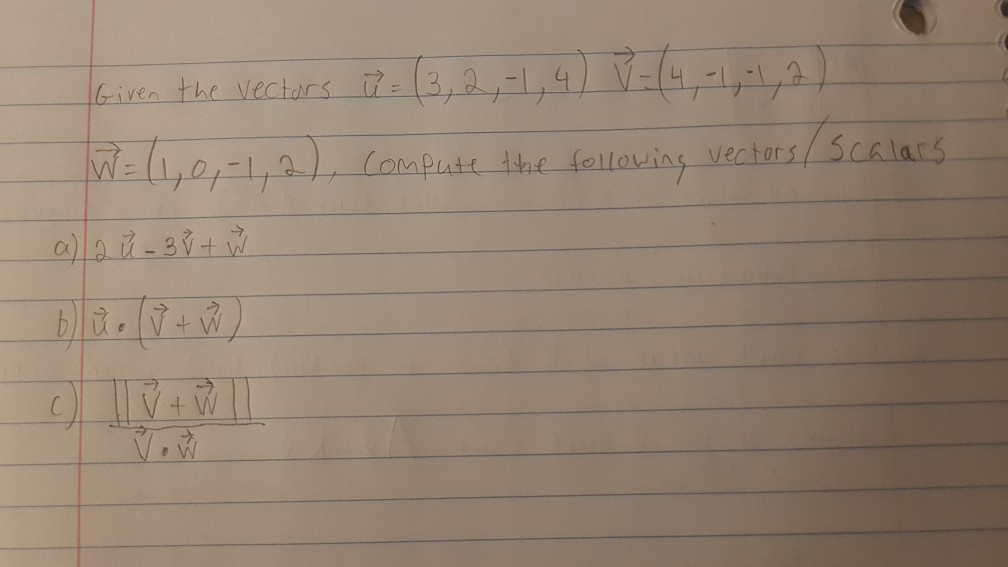 Given the vectors u⃗ = (3, 2, -1, 4) V⃗ = (4, -1, -1, 2)
W⃗ = (1, 0, -1, 2), compute the following vectors/scalars
a) 2u⃗ - 3V⃗ + W⃗
b) u⃗ • (V⃗ + W⃗)
c) ||V⃗ + W⃗||
V⃗ • W⃗